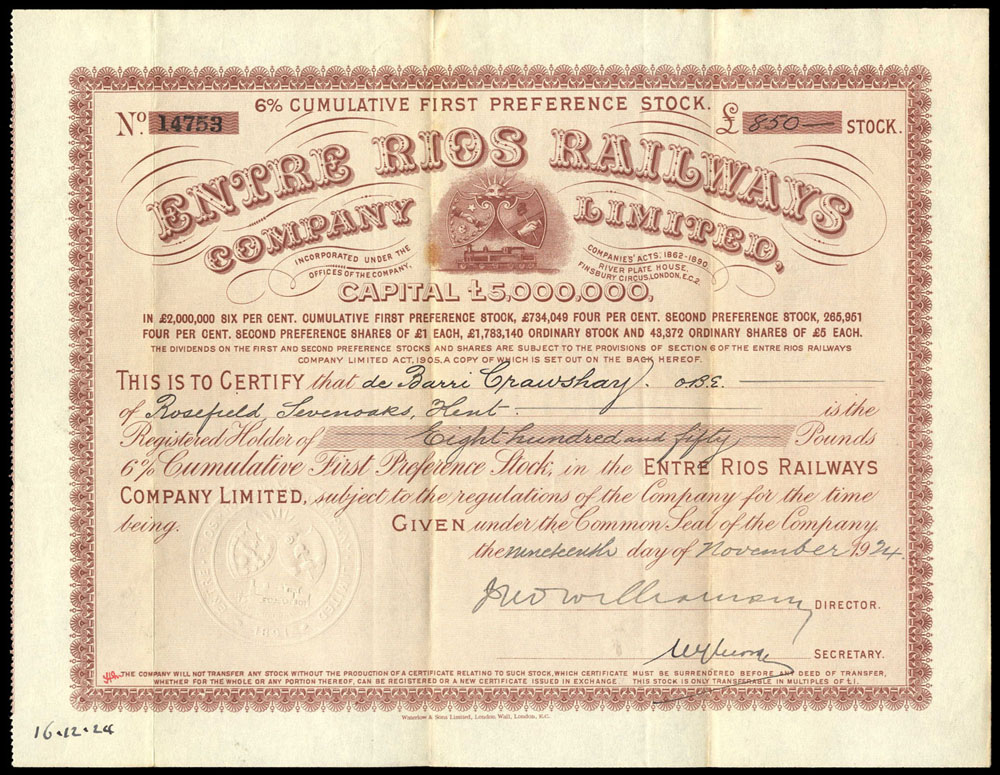 6% CUMULATIVE FIRST PREFERENCE STOCK.
No. 14753
£ 850— STOCK.
ENTRE RIOS RAILWAYS
COMPANY LIMITED,
INCORPORATED UNDER THE COMPANIES' ACTS, 1862-1890.
OFFICES OF THE COMPANY, RIVER PLATE HOUSE,
FINSBURY CIRCUS, LONDON, E.C.2.
CAPITAL £5,000,000,
IN £2,000,000 SIX PER CENT. CUMULATIVE FIRST PREFERENCE STOCK, £734,049 FOUR PER CENT. SECOND PREFERENCE STOCK, 265,951
FOUR PER CENT. SECOND PREFERENCE SHARES OF £1 EACH, £1,783,140 ORDINARY STOCK AND 43,372 ORDINARY SHARES OF £5 EACH.
THE DIVIDENDS ON THE FIRST AND SECOND PREFERENCE STOCKS AND SHARES ARE SUBJECT TO THE PROVISIONS OF SECTION 6 OF THE ENTRE RIOS RAILWAYS
COMPANY LIMITED ACT, 1905, A COPY OF WHICH IS SET OUT ON THE BACK HEREOF.
THIS IS TO CERTIFY that de Barri Crawshay. OBE.
of Rosefield Sevenoaks, Kent is the
Registered Holder of Eight hundred and fifty Pounds
6% Cumulative First Preference Stock, in the ENTRE RIOS RAILWAYS
COMPANY LIMITED, subject to the regulations of the Company for the time
being. GIVEN under the Common Seal of the Company,
the nineteenth day of November 1924.
DIRECTOR.
SECRETARY.
THE COMPANY WILL NOT TRANSFER ANY STOCK WITHOUT THE PRODUCTION OF A CERTIFICATE RELATING TO SUCH STOCK, WHICH CERTIFICATE MUST BE SURRENDERED BEFORE ANY DEED OF TRANSFER,
WHETHER FOR THE WHOLE OR ANY PORTION THEREOF, CAN BE REGISTERED OR A NEW CERTIFICATE ISSUED IN EXCHANGE. THIS STOCK IS ONLY TRANSFERABLE IN MULTIPLES OF £1.
Waterlow & Sons Limited, London Wall, London, E.C.
16.12.24